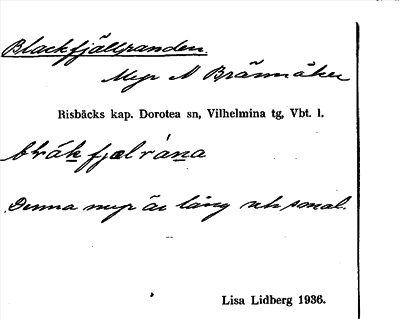 Blackfjällranden.
Myr N Brännåker
Risbäcks kap. Dorotea sn, Vilhelmina tg, Vbt. l.
blák fjælrána
Denna myr är lång och smal.
Lisa Lidberg 1936.